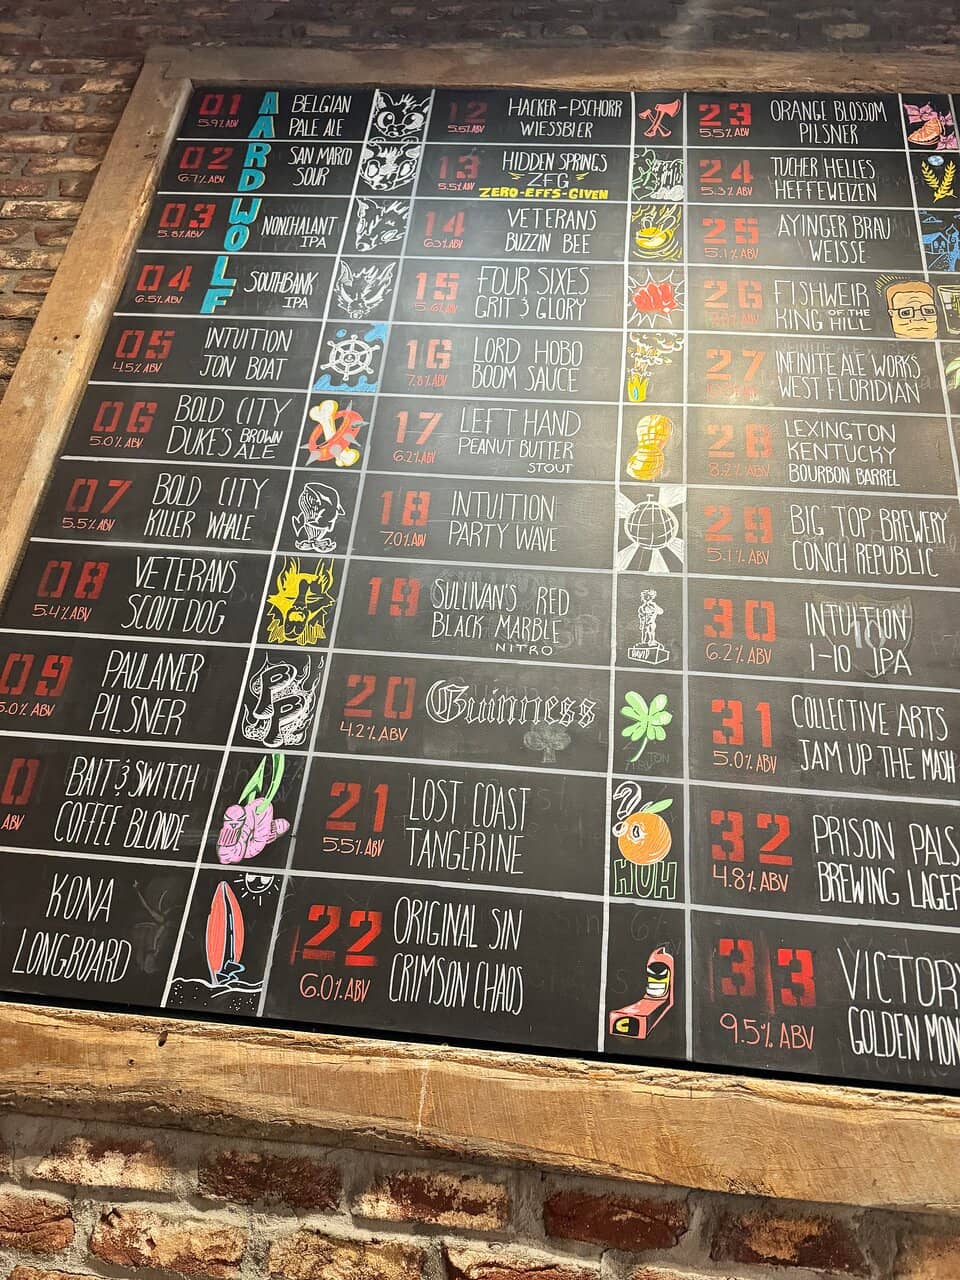 01
5.9% ABV
BELGIAN
PALE ALE
AARDWOLF
02
6.7% ABV
SAN MARCO
SOUR
03
5.8% ABV
NONCHALANT
IPA
04
6.5% ABV
SOUTHBANK
IPA
05
4.5% ABV
INTUITION
JON BOAT
06
5.0% ABV
BOLD CITY
DUKE'S BROWN
ALE
07
5.5% ABV
BOLD CITY
KILLER WHALE
08
5.4% ABV
VETERANS
SCOUT DOG
09
5.0% ABV
PAULANER
PILSNER
0
ABV
BAIT & SWITCH
COFFEE BLONDE
KONA
LONGBOARD
12
HACKER-PSCHORR
WIESSBIER
13
5.5% ABV
HIDDEN SPRINGS
ZFG
ZERO-EFFS-GIVEN
14
VETERANS
BUZZIN BEE
15
FOUR SIXES
GRIT & GLORY
16
7.8% ABV
LORD HOBO
BOOM SAUCE
17
6.2% ABV
LEFT HAND
PEANUT BUTTER
STOUT
18
7.0% ABV
INTUITION
PARTY WAVE
19
SULLIVAN'S RED
BLACK MARBLE
NITRO
DAVID
20
4.2% ABV
Guinness
21
5.5% ABV
LOST COAST
TANGERINE
?
HUH
22
6.0% ABV
ORIGINAL SIN
CRIMSON CHAOS
23
5.5% ABV
ORANGE BLOSSOM
PILSNER
24
5.3% ABV
TUCHER HELLES
HEFFEWEIZEN
25
5.1% ABV
AYINGER BRAU
WEISSE
26
FISHWEIR
OF THE
KING HILL
27
INFINITE ALE WORKS
WEST FLORIDIAN
28
8.2% ABV
LEXINGTON
KENTUCKY
BOURBON BARREL
29
5.1% ABV
BIG TOP BREWERY
CONCH REPUBLIC
30
6.2% ABV
INTUITION
I-10 IPA
31
5.0% ABV
COLLECTIVE ARTS
JAM UP THE MASH
32
4.8% ABV
PRISON PALS
BREWING LAGER
33
9.5% ABV
VICTORY
GOLDEN MON